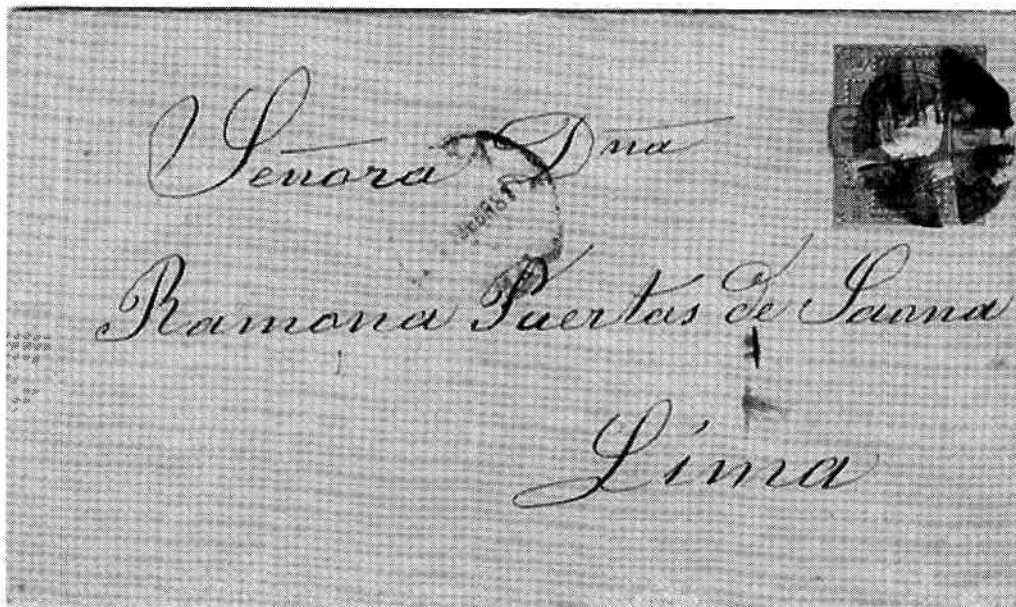 Señora Dña
Ramona Puertas de Saona
Lima